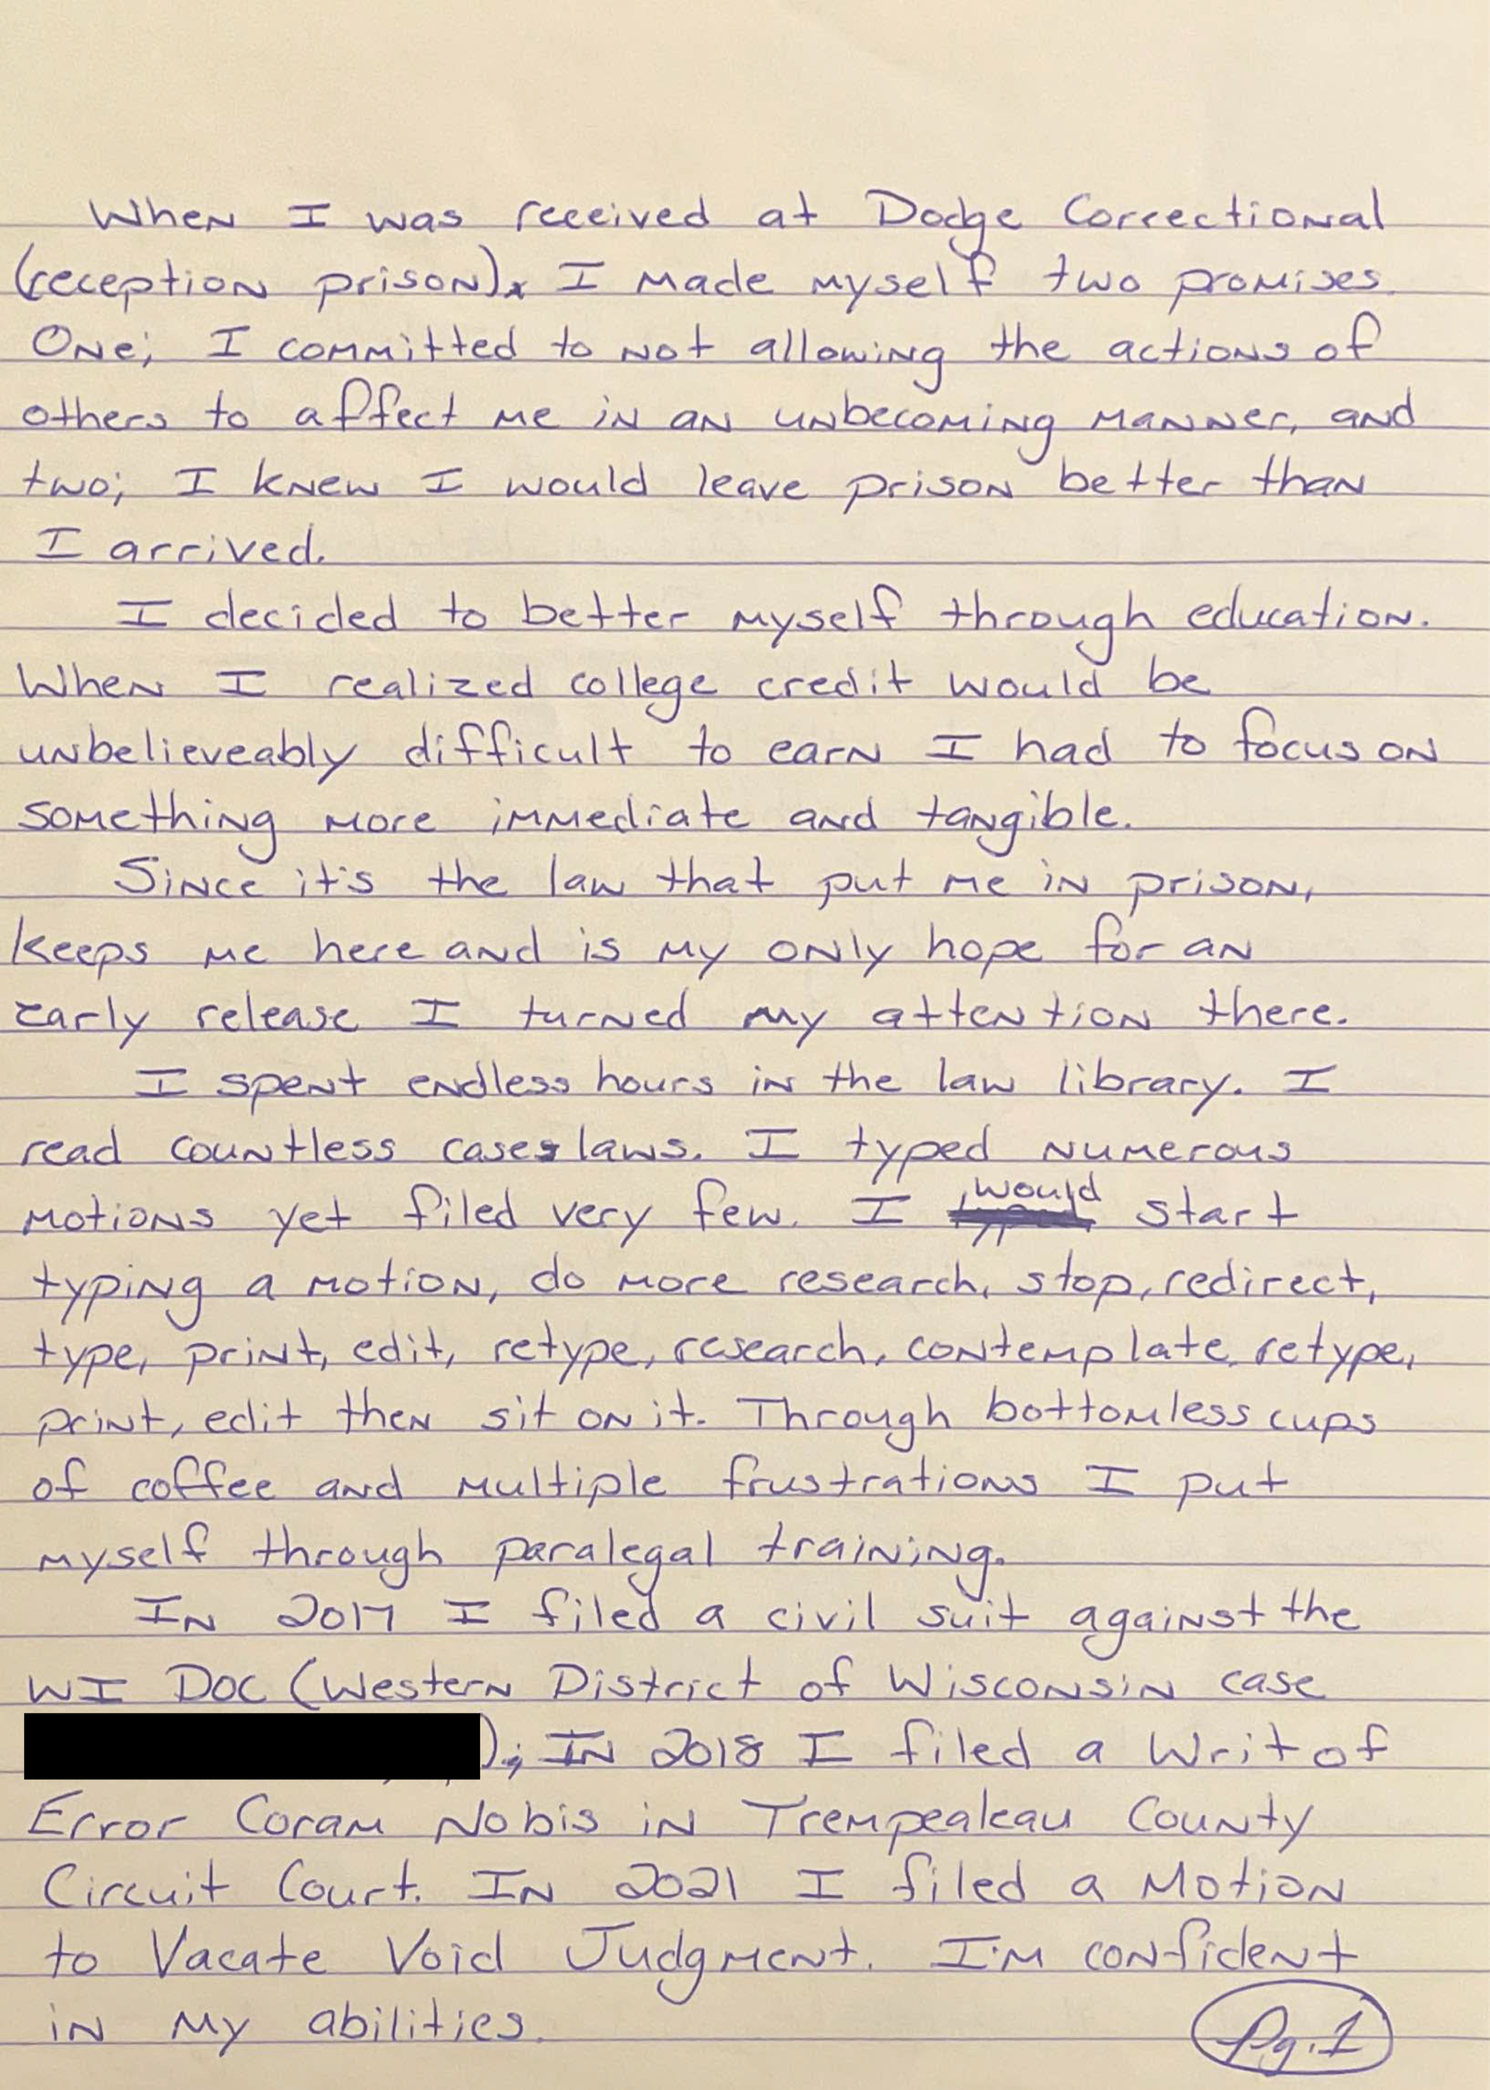 When I was received at Dodge Correctional
(reception prison), I made myself two promises.
One; I committed to not allowing the actions of
others to affect me in an unbecoming manner, and
two; I knew I would leave prison better than
I arrived.
I decided to better myself through education.
When I realized college credit would be
unbelieveably difficult to earn I had to focus on
something more immediate and tangible.
Since it's the law that put me in prison,
keeps me here and is my only hope for an
early release I turned my attention there.
I spent endless hours in the law library. I
read countless cases laws. I typed numerous
motions yet filed very few. I would start
typing a motion, do more research, stop, redirect,
type, print, edit, retype, research, contemplate, retype,
print, edit then sit on it. Through bottomless cups
of coffee and multiple frustrations I put
myself through paralegal training.
In 2017 I filed a civil suit against the
WI DOC (Western District of Wisconsin case
); In 2018 I filed a Writ of
Error Coram Nobis in Trempealeau County
Circuit Court. In 2021 I filed a Motion
to Vacate Void Judgment. I'm confident
in my abilities.
Pg. 1